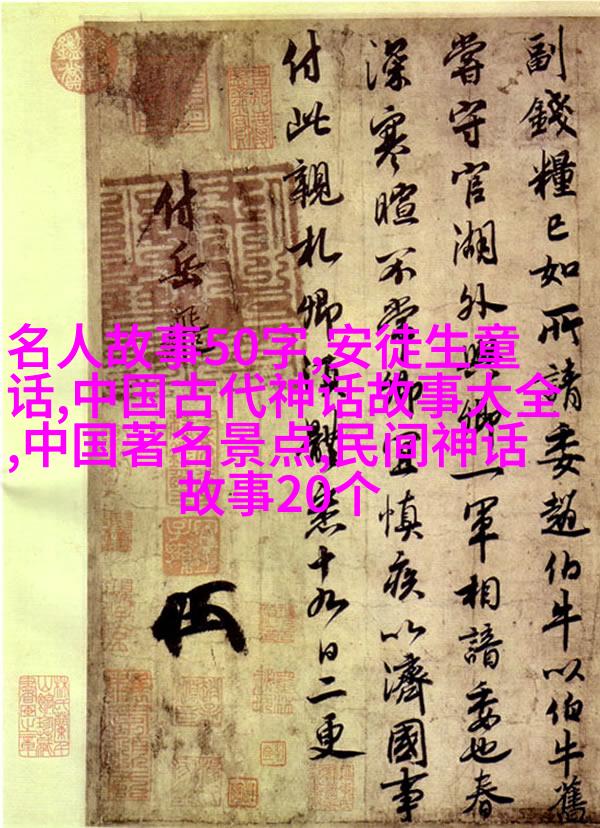 名人故事50字,安徒生童
话,中国古代神话故事大全
,中国著名景点,民间神话
故事20个
副錢糧已如所請委趙伯牛以伯牛舊
嘗守官湖外與卿一軍相諳委也春
深寒暄不常卿宜慎疾以濟國事
付此親札卿須體悉十九日二更
付岳飛